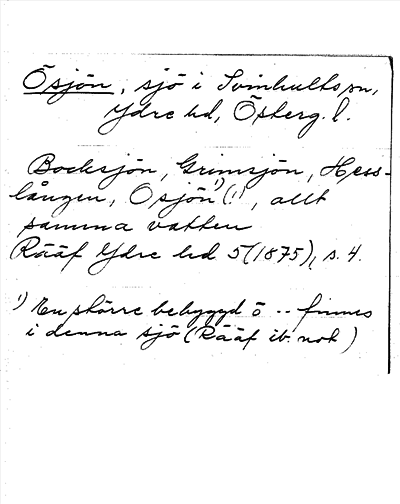 Ösjön, sjö i Svinhults sn,
Ydre hd, Österg. l.
Bocksjön, Grimsjön, Hess-
lången, Osjön¹⁾(!), allt
samma vatten
Rääf Ydre hd 5 (1875), s. 4.
¹⁾ En större bebyggd ö -- finnes
i denna sjö (Rääf ib. not)